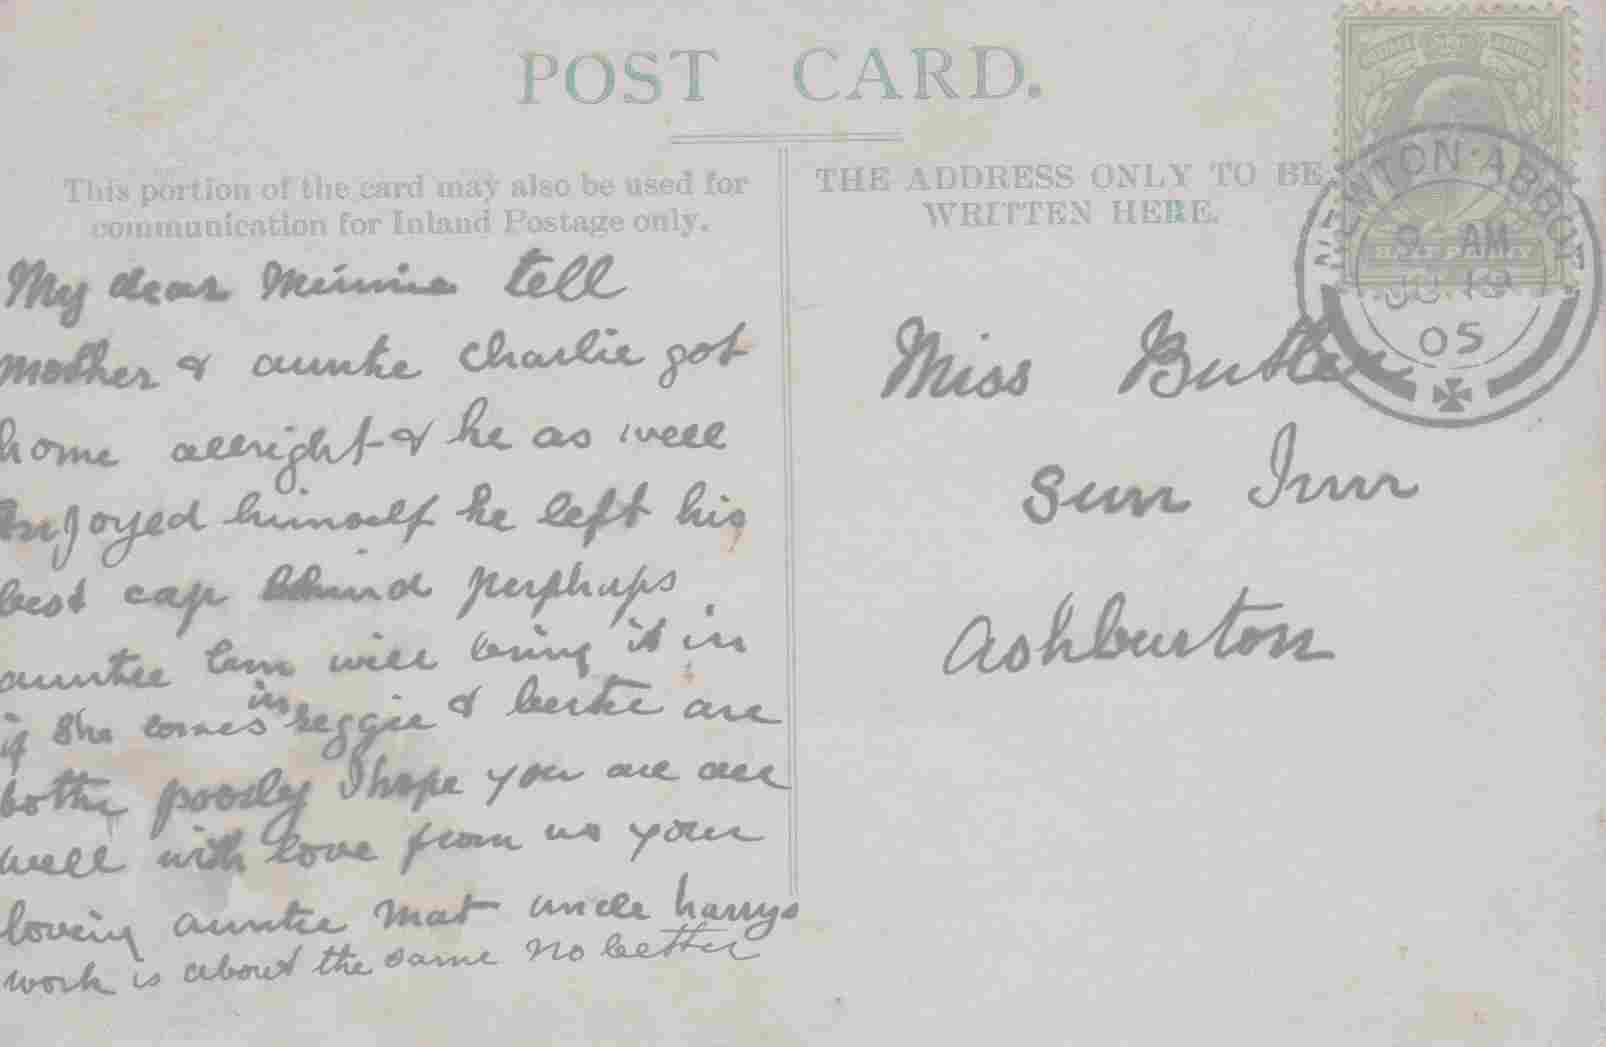 POST CARD.
This portion of the card may also be used for
communication for Inland Postage only.
THE ADDRESS ONLY TO BE
WRITTEN HERE.
NEWTON·ABBOT
9 AM
JU 19
05
HALF PENNY
My dear Minnie tell
mother & auntie Charlie got
home allright & he as well
Injoyed himself he left his
best cap behind perphaps
auntie will bring it in
if she comes in reggie & bertie are
both poorly I hope you are all
well with love from us your
loving auntie Mat uncle harrys
work is about the same no better
Miss Butler
Sun Inn
Ashburton